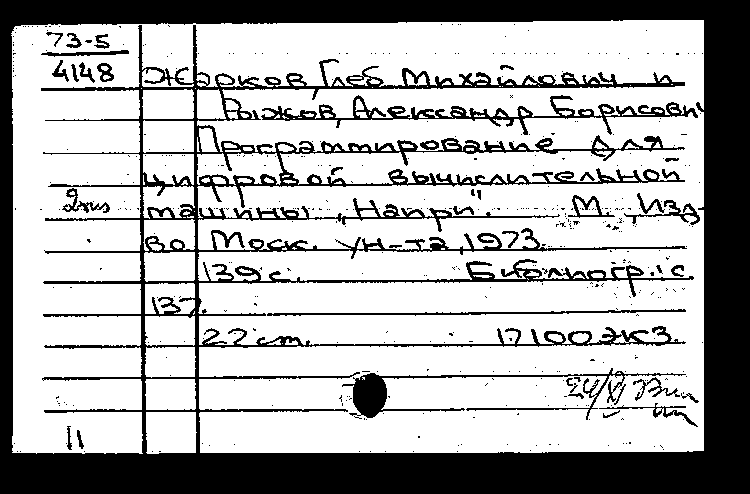 73-5
4148 Жарков, Глеб Михайлович и
Рыжов, Александр Борисович
Программирование для
цифровой вычислительной
2экз машины „Наири". М., Изд-
во Моск. ун-та, 1973.
139с. Библиогр.: с.
137.
22 cm. 17100 экз.
24/XI
11